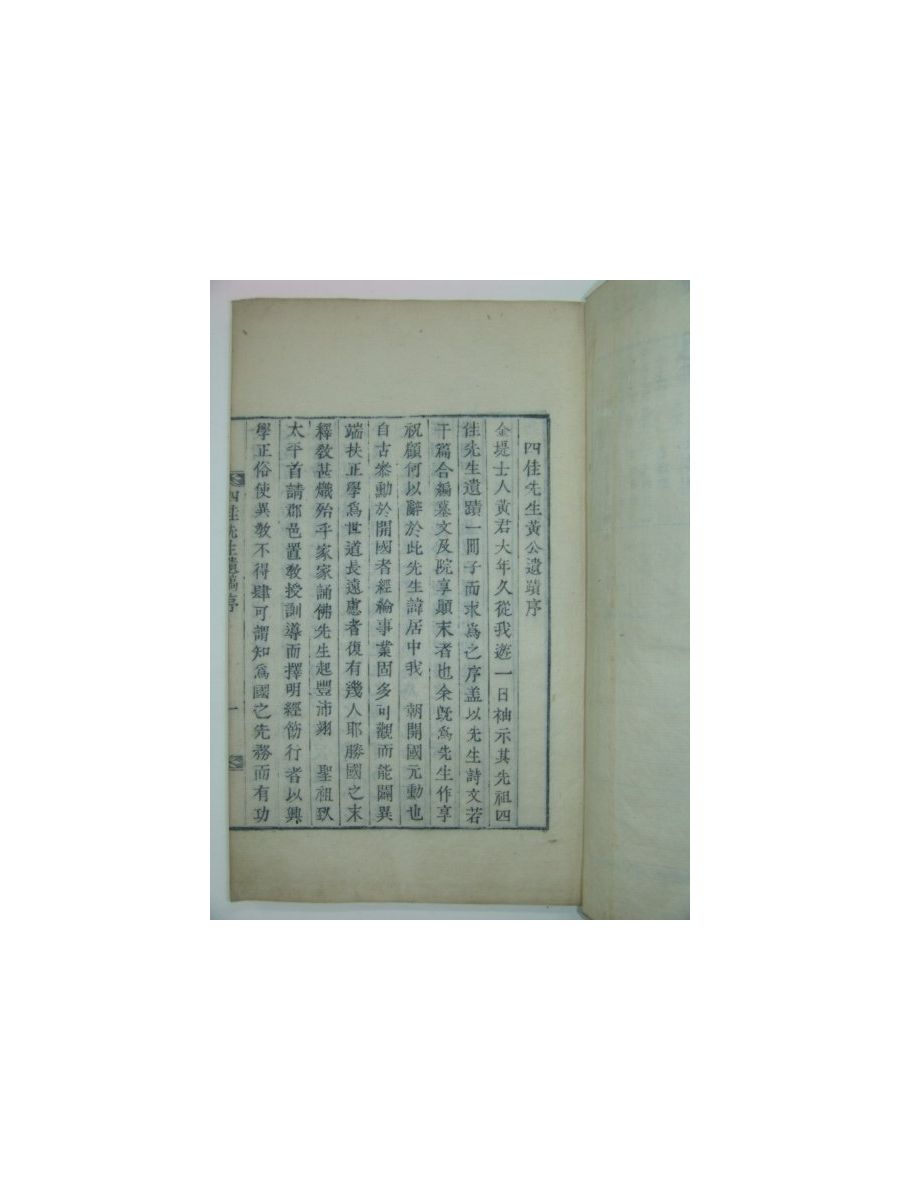 四佳先生黃公遺蹟序
金堤士人黃君大年久從我遊一日袖示其先祖四
佳先生遺蹟一冊子而求爲之序盖以先生詩文若
干篇合編墓文及院享顚末者也余旣爲先生作享
祝顧何以辭於此先生諱居中我 朝開國元勳也
自古叅勳於開國者經綸事業固多可觀而能闢異
端扶正學爲世道長遠慮者復有幾人耶勝國之末
釋敎甚熾殆乎家家誦佛先生起豐沛翊 聖祖
太平首請郡邑置敎授訓導而擇明經飭行者以興
學正俗使異敎不得肆可謂知爲國之先務而有功
四佳先生遺稿序
一